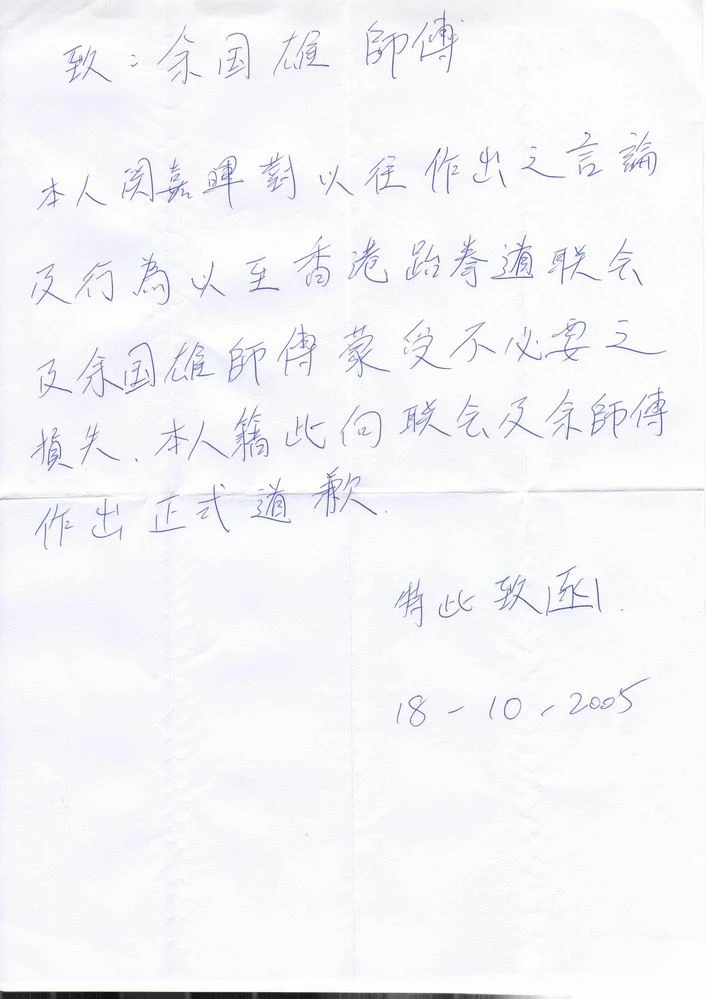 致：余国雄 師傅
本人関嘉暉對以往作出之言論
及行為以至香港跆拳道联会
及余国雄師傅蒙受不必要之
損失、本人籍此向联会及余師傅
作出正式道歉.
特此致函.
18-10-2005